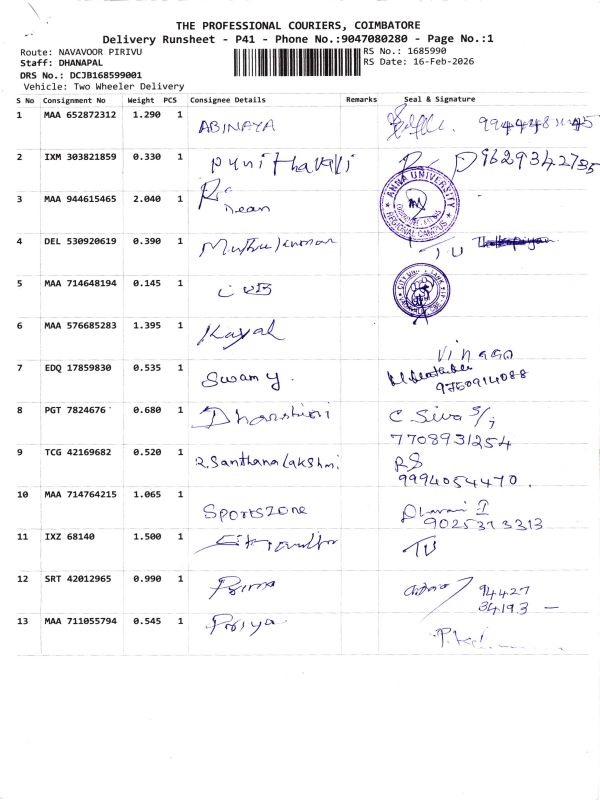 THE PROFESSIONAL COURIERS, COIMBATORE
Delivery Runsheet - P41 - Phone No.:9047080280 - Page No.:1
Route: NAVAVOOR PIRIVU
RS No.: 1685990
Staff: DHANAPAL
RS Date: 16-Feb-2026
DRS No.: DCJB168599001
Vehicle: Two Wheeler Delivery
S No Consignment No Weight PCS Consignee Details Remarks Seal & Signature
1 MAA 652872312 1.290 1 ABINAYA
2 IXM 303821859 0.330 1 Punithavalli 9629342735
3 MAA 944615465 2.040 1 Dean
ANNA UNIVERSITY
REGIONAL CAMPUS
4 DEL 530920619 0.390 1 Muthukumar
5 MAA 714648194 0.145 1 CUB
6 MAA 576685283 1.395 1 Kayal
7 EDQ 17859830 0.535 1 Swamy
9750914088
8 PGT 7824676 0.680 1 Dharshini C Siva
7708931254
9 TCG 42169682 0.520 1 R.Santhanalakshmi RS
9994054470.
10 MAA 714764215 1.065 1 Sportszone Dharani
9025373313
11 IXZ 68140 1.500 1
12 SRT 42012965 0.990 1 94427
34193
13 MAA 711055794 0.545 1 Priya